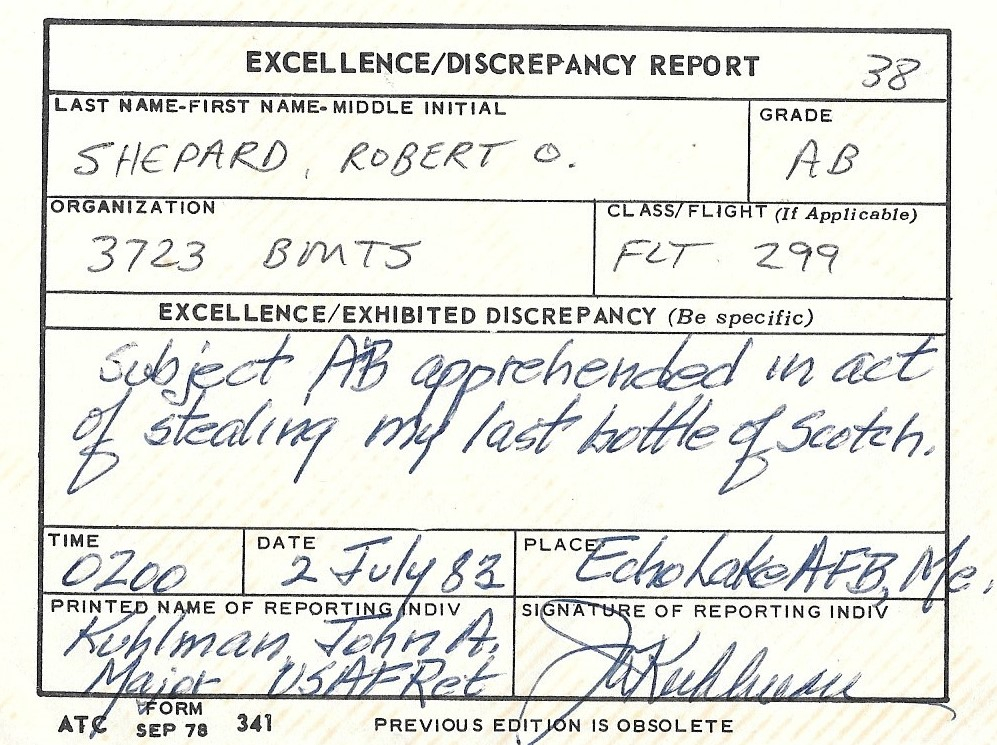 EXCELLENCE/DISCREPANCY REPORT 38
LAST NAME-FIRST NAME-MIDDLE INITIAL
SHEPARD, ROBERT O.
GRADE
AB
ORGANIZATION
3723 BMTS
CLASS/FLIGHT (If Applicable)
FLT 299
EXCELLENCE/EXHIBITED DISCREPANCY (Be specific)
Subject AB apprehended in act
of stealing my last bottle of Scotch.
TIME
0200
DATE
2 July 83
PLACE
Echo Lake AFB, Me.
PRINTED NAME OF REPORTING INDIV
Kuhlman, John A.
Major USAF Ret
SIGNATURE OF REPORTING INDIV
JAKuhlman
ATC FORM SEP 78 341 PREVIOUS EDITION IS OBSOLETE